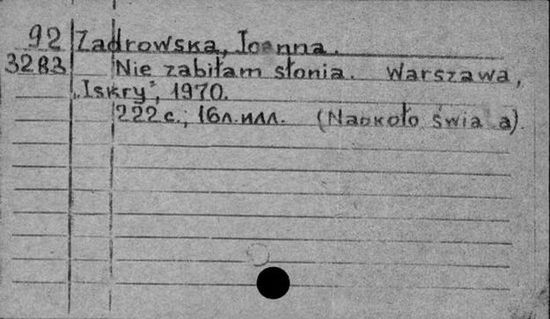 92 Zadrowska, Ioanna.
3283 Nie zabiłam słonia. Warszawa,
„Iskry", 1970.
222 с.; 16л.илл. (Naokoło świa a).